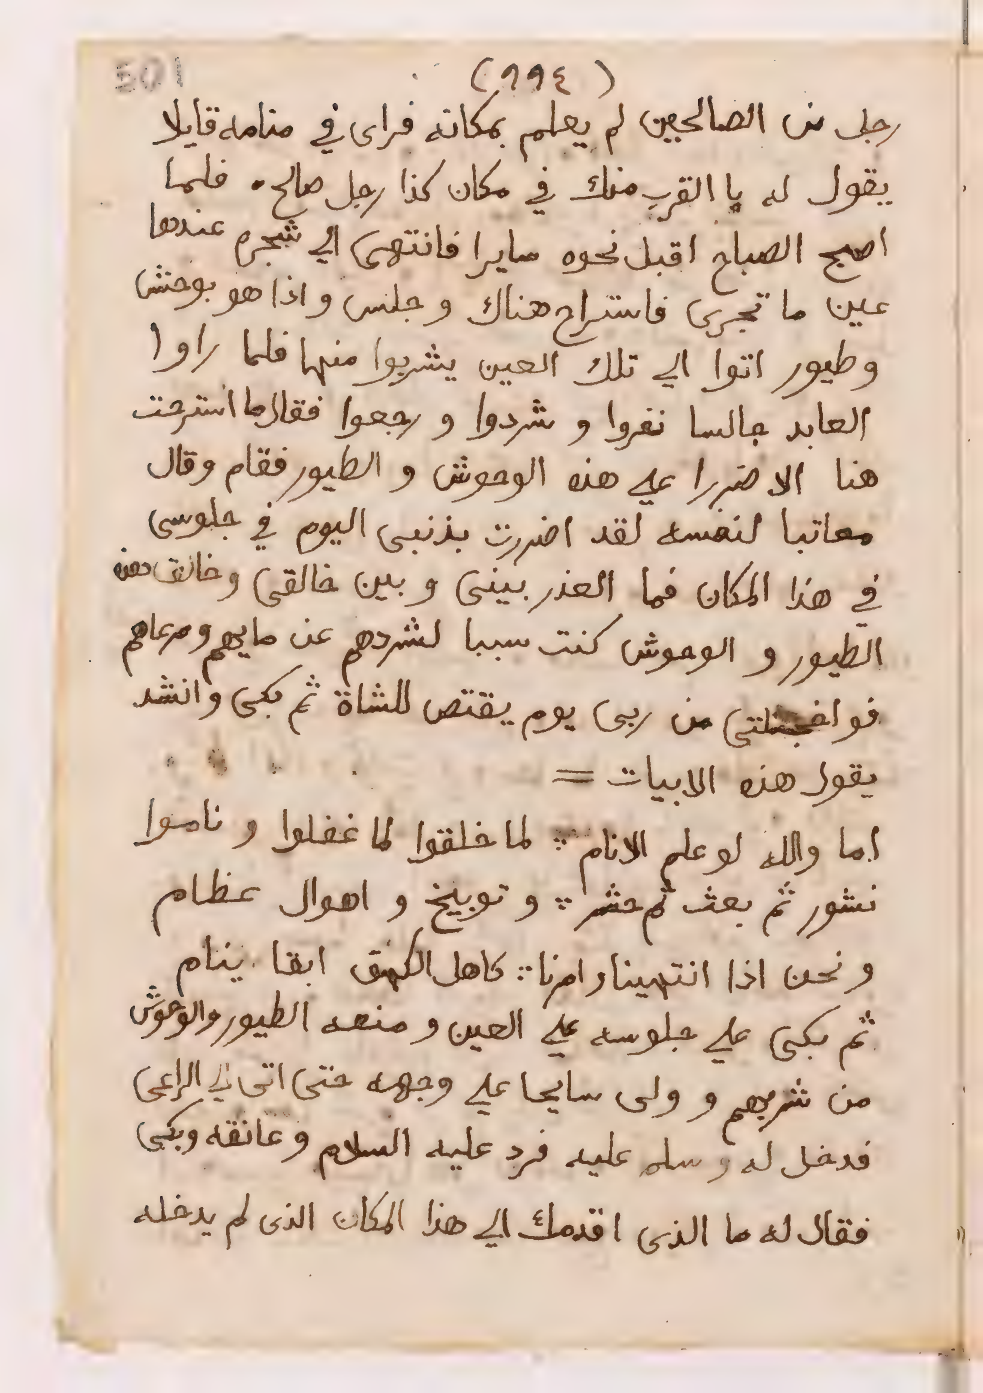 501
(٩٩٤)
رجل من الصالحين لم يعلم بمكانه فراى في منامه قايلا
يقول له بالقرب منك في مكان كذا رجل صالح . فلما
اصبح الصباح اقبل نحوه سايرا فانتهى الي شجره عندها
عين ما تجرى فاستراح هناك و جلس واذا هو بوحش
وطيور اتوا الي تلك العين يشربوا منها فلما راوا
العابد جالسا نفروا و شردوا و رجعوا فقال ما استرحت
هنا الا ضررا علي هذه الوحوش و الطيور فقام وقال
معاتبا لنفسه لقد اضررت بذنبى اليوم في جلوسى
في هذا المكان فما العذر بينى و بين خالقى وخالق هذه
الطيور و الوحوش كنت سببا لشردهم عن مايهم ومرعاهم
فواخجلتى من ربى يوم يقتص للشاة ثم بكى وانشد
يقول هذه الابيات =
اما والله لو علم الانام ∴ لما خلقوا لما غفلوا و ناموا
نشور ثم بعث ثم حشر ∴ و توبيخ و اهوال عظام
و نحن اذا انتهينا وامرنا ∴ كاهل الكهف ايقا ينام
ثم بكى علي جلوسه علي العين و منعه الطيور والوحوش
من شربهم و ولى سايحا علي وجهه حتى اتى الي الراعى
فدخل له و سلم عليه فرد عليه السلام و عانقه وبكى
فقال له ما الذى اقدمك الي هذا المكان الذى لم يدخله